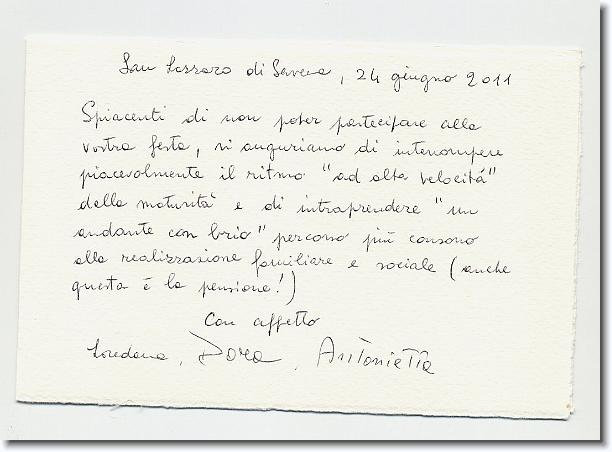 San Lazzaro di Savena, 24 giugno 2011
Spiacenti di non poter partecipare alla
vostra festa, vi auguriamo di interrompere
piacevolmente il ritmo "ad alta velocitá"
della maturità e di intraprendere "un
andante con brio" percorso più consono
alla realizzazione familiare e sociale (anche
questa è la pensione!)
Con affetto
Loredana, Dora, Antonietta